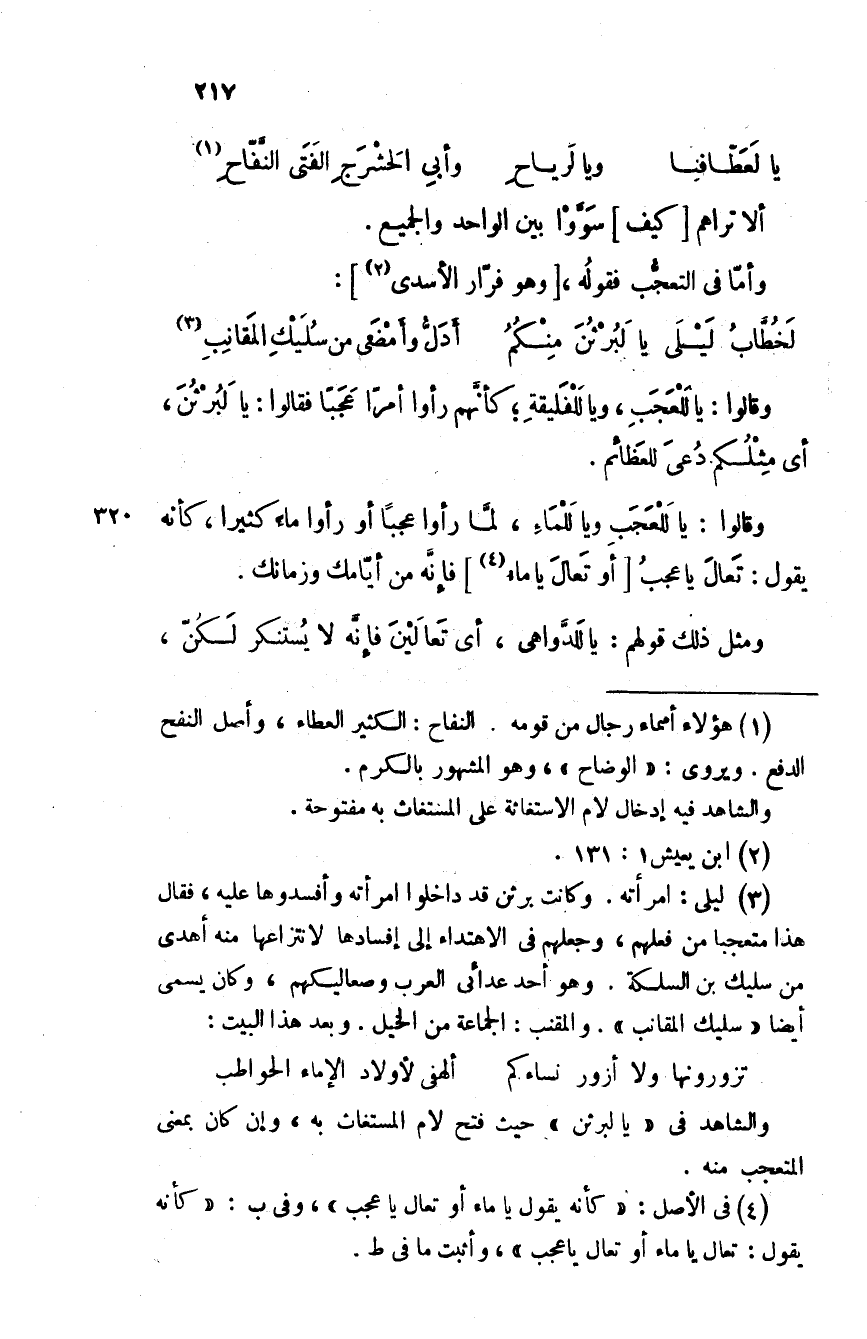 ٢١٧
يا لَعَطّافنا ويا لَرياحِ وأبي الحَشْرَجِ الفَتَى النَّفّاحِ (١)
ألا تراهم [ كيف ] سَوَّوْا بين الواحد والجميع .
وأمّا فى التعجُّب فقولُه ، [ وهو فرّار الأسدى (٢) ] :
لَخُطَّابُ لَيْلَى يا لَبُرْثُنَ مِنْكُمُ أَدَلُّ وأَمْضَى من سُلَيْكِ المَقانِبِ (٣)
وقالوا : يا لَلْعَجَبِ ، ويا لَلْفَلِيقةِ ؛ كأنَّهم رأوا أمرًا عَجَبًا فقالوا : يا لَبُرْثُنَ ،
أى مِثْلُكم دُعىَ للعَظائم .
وقالوا : يا لَلْعَجَبِ ويا لَلْماءِ ، لمَّا رأوا عجبًا أو رأوا ماء كثيرا ، كأنه ٣٢٠
يقول : تَعالَ يا عجبُ [ أو تَعالَ يا ماء (٤) ] فإِنَّه من أيّامك وزمانك .
ومثل ذلك قولهم : يا لَلدَّواهى ، أى تَعالَيْنَ فإِنَّه لا يُستنكر لَكُنّ ،
(١) هؤلاء أسماء رجال من قومه . النفاح : الكثير العطاء ، وأصل النفح
الدفع . ويروى : « الوضاح » ، وهو المشهور بالكرم .
والشاهد فيه إدخال لام الاستغاثة على المستغاث به مفتوحة .
(٢) ابن يعيش ١ : ١٣١ .
(٣) ليلى : امرأته . وكانت برثن قد داخلوا امرأته وأفسدوها عليه ، فقال
هذا متعجبا من فعلهم ، وجعلهم فى الاهتداء إلى إفسادها لانتزاعها منه أهدى
من سليك بن السلكة . وهو أحد عدائى العرب وصعاليكهم ، وكان يسمى
أيضا « سليك المقانب » . والمقنب : الجماعة من الخيل . وبعد هذا البيت :
تزورونها ولا أزور نساءكم ألهفى لأولاد الإماء الحواطب
والشاهد فى « يا لبرثن » حيث فتح لام المستغاث به ، وإن كان بمعنى
المتعجب منه .
(٤) فى الأصل : « كأنه يقول يا ماء أو تعال يا عجب » ، وفى ب : « كأنه
يقول : تعال يا ماء أو تعال يا عجب » ، وأثبت ما فى ط .